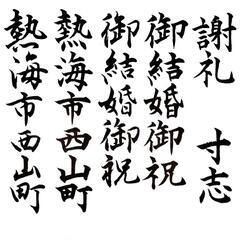 謝礼 寸志
御結婚御祝
御結婚御祝
熱海市西山町
熱海市西山町